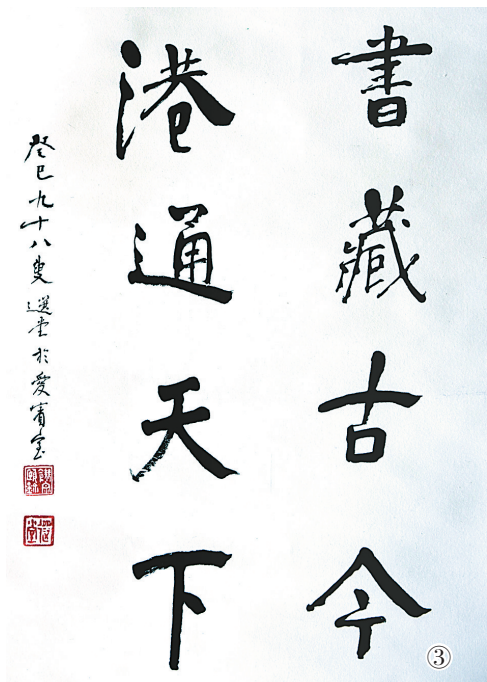 書藏古今
港通天下
癸巳九十八叟選堂於愛賓室
③